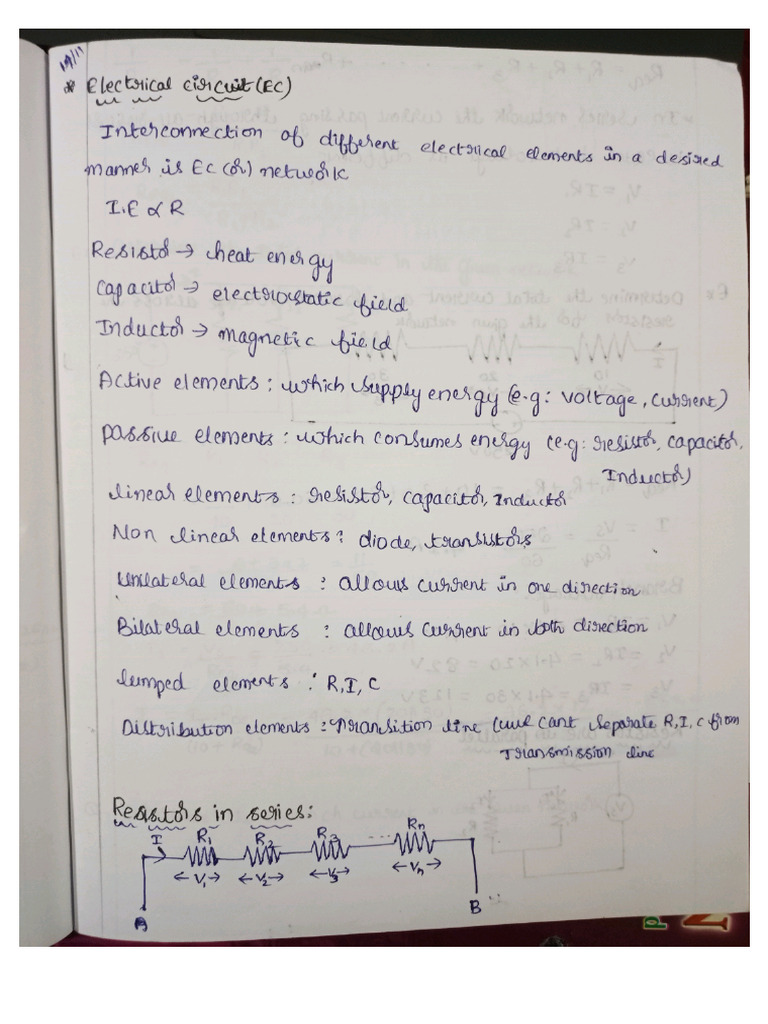 19/11
* Electrical circuit (EC)
Interconnection of different electrical elements in a desired
manner is EC (or) network
I.E ∝ R
Resistor → heat energy
Capacitor → electrostatic field
Inductor → magnetic field
Active elements : which supply energy (e.g: voltage, current)
passive elements : which consumes energy (e.g: resistor, capacitor,
Inductor)
linear elements : resistor, capacitor, Inductor
Non linear elements : diode, transistors
Unilateral elements : allows current in one direction
Bilateral elements : allows current in both direction
lumped elements : R, I, C
Distribution elements : Transition line (we cant separate R, I, C from
transmission line
Resistors in series:
I R1 R2 R3 .... Rn
←V1→ ←V2→ ←V3→ ←Vn→
A B